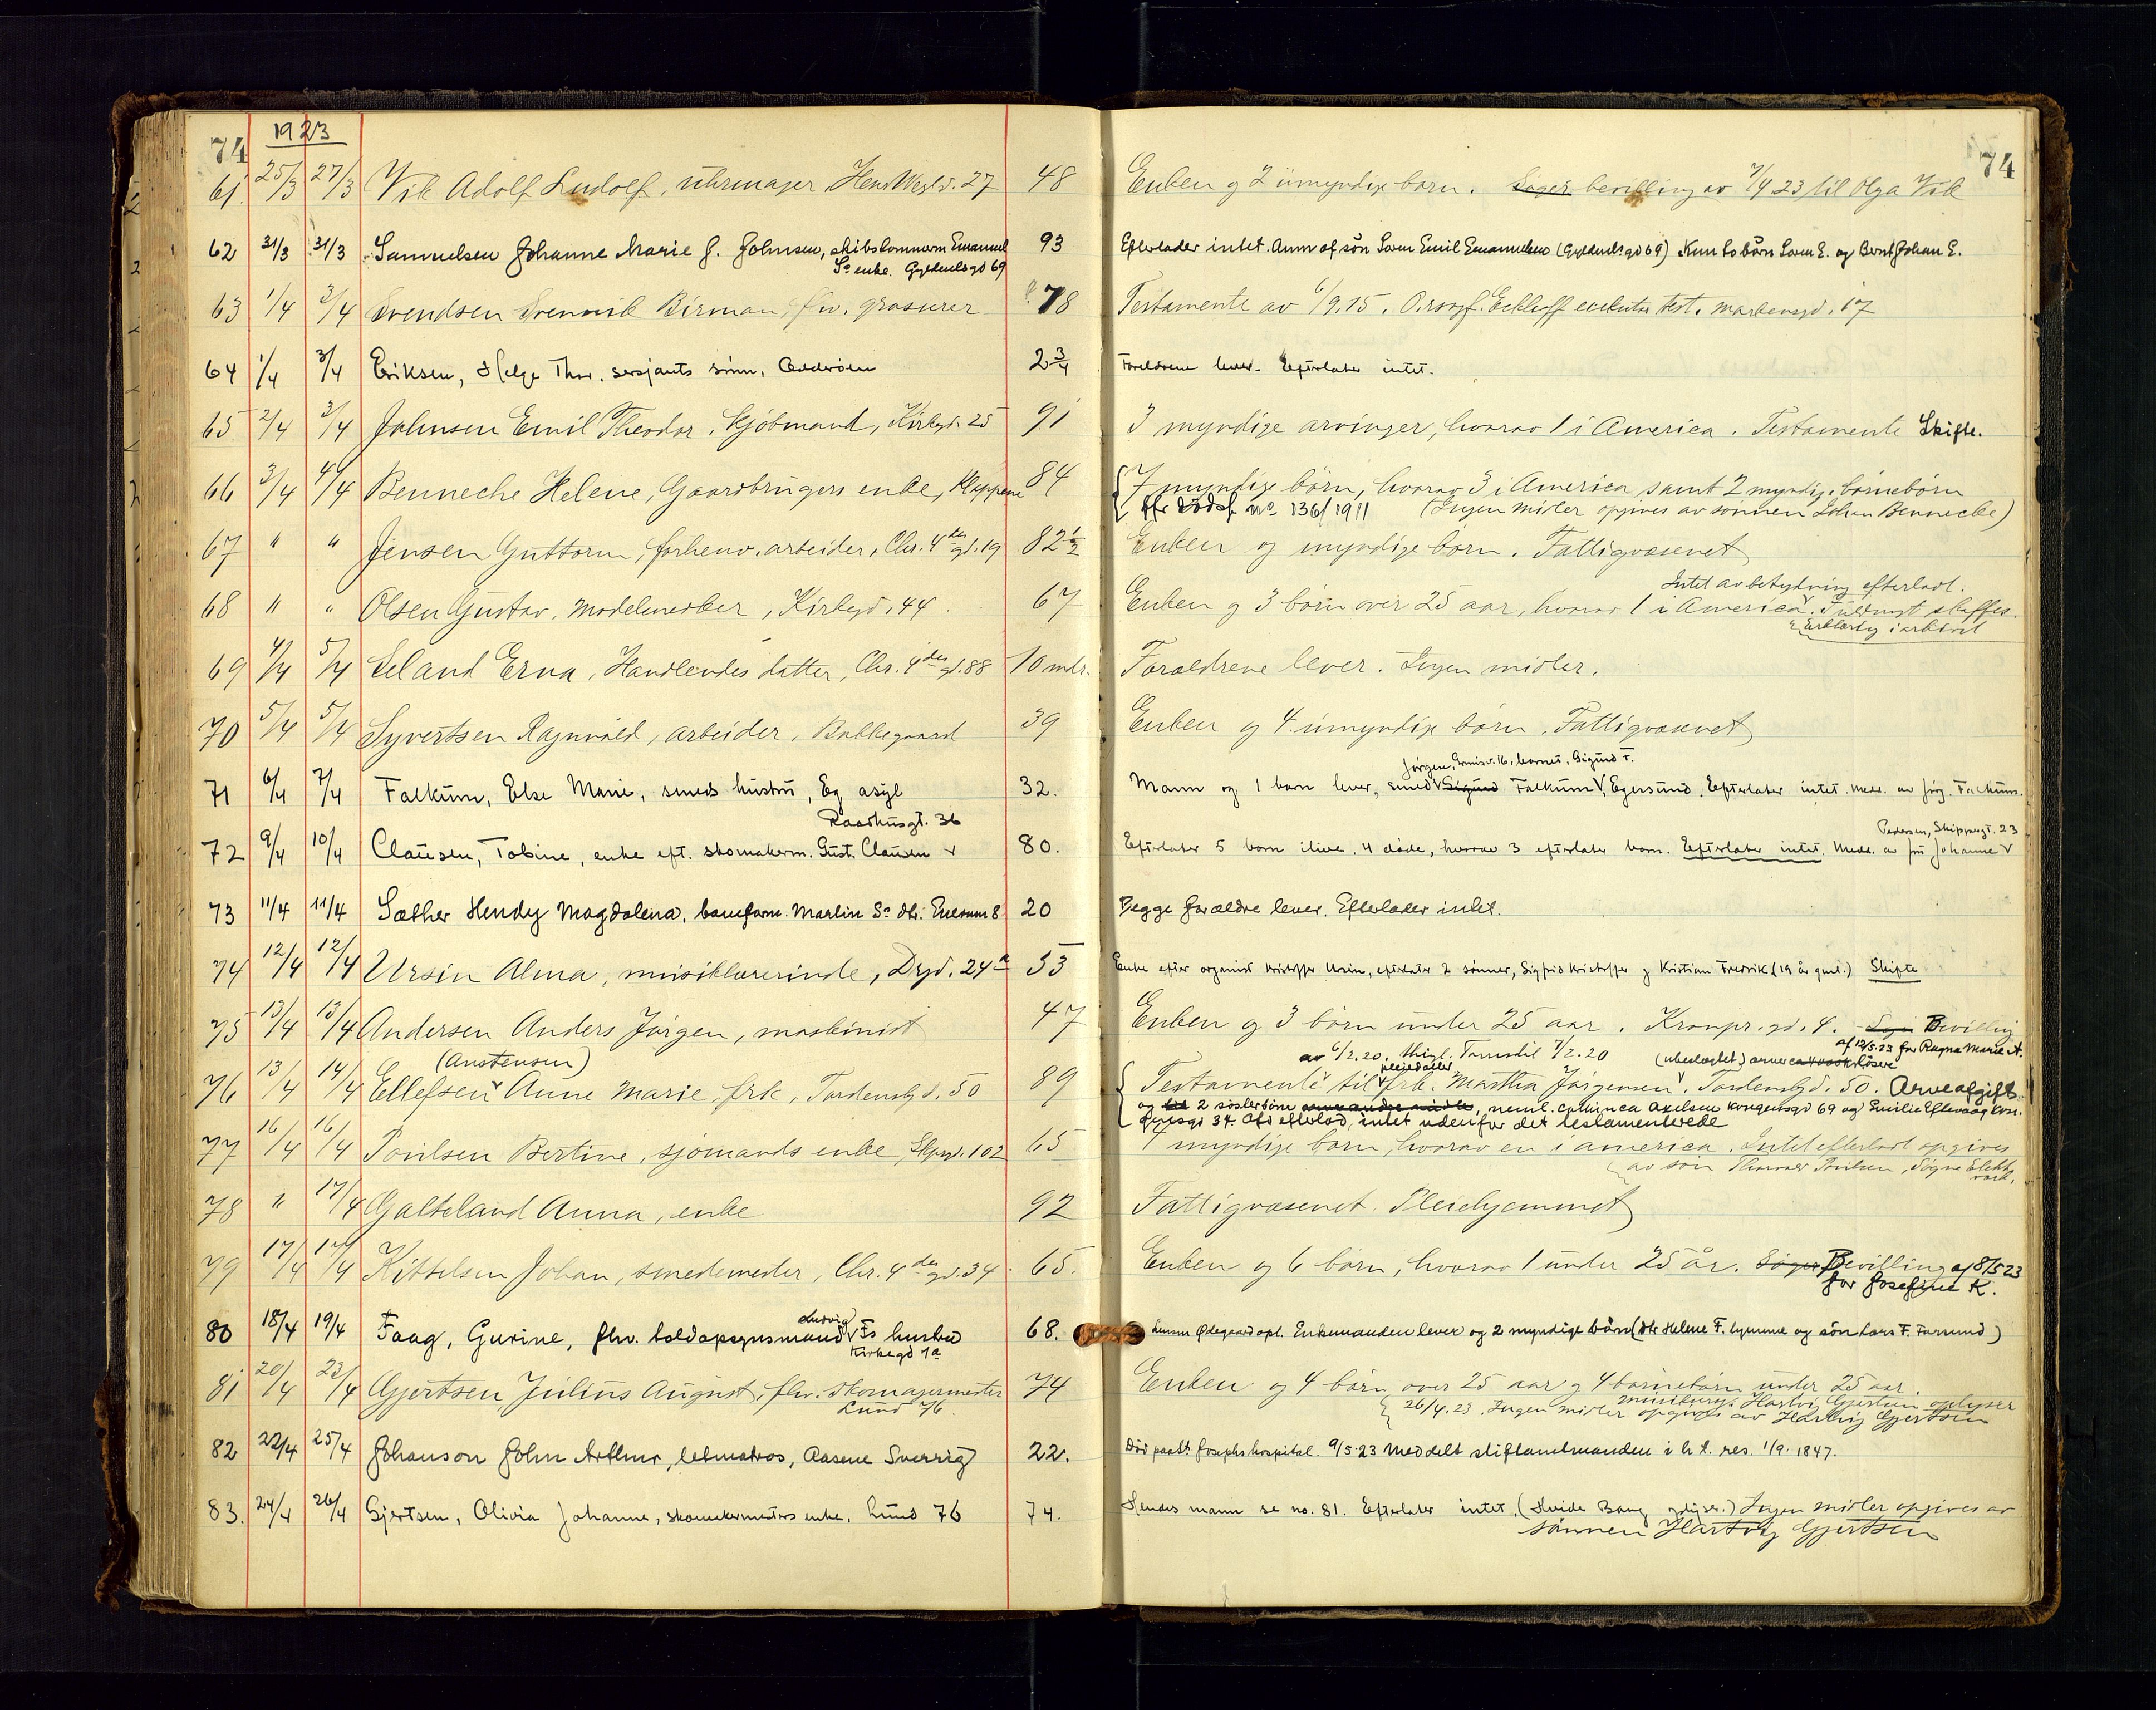 74 1923 74
61 25/3 27/3 Vik Adolf Ludolf, uhrmager, Hen. Wergl. 27 48 Enken og 2 umyndige børn. Søger bevilling av 7/4 23 til Olga Vik
62 31/3 31/3 Samuelsen Johanne Marie f. Johnsen, skibstømmerm Emanuel 93 Efterlader intet. Anm af søn Søren Emil Emanuelsen (Gyldenløsgd 69) Kun to børn Søren E. og Bernt Johan E.
Ss enke. Gyldenløsgd 69
63 1/4 3/4 Svendsen Svennik Birman, fhv. grosserer 78 Testamente av 6/9.15. O.rsagf. Eckhoff executor test. Markensgd. 17
64 1/4 3/4 Eriksen, Helge Thor. sersjants sønn, Odderøen 2 3/4 Foreldrene lever. Efterlater intet.
65 2/4 3/4 Johnsen Emil Theodor, Kjøbmand, Kirkegd. 25 91 3 myndige arvinger, hvorav 1 i America. Testamente Skifte.
66 3/4 4/4 Benneche Helene, Gaardbrugers enke, Kleppene 84 7 myndige børn, hvorav 3 i America samt 2 myndige børnebørn
jfr dødsf no 136/1911 (Ingen midler opgives av sønnen Johan Bennecke)
67 " " Jensen Guttorm, forhenv. arbeider, Chr. 4des gd. 19 82 1/2 Enken og myndige børn. Fattigvæsenet
Intet av betydning efterladt.
68 " " Olsen Gustav, Modelsnedker, Kirkegd. 44. 67 Enken og 3 børn over 25 aar, hvorav 1 i America. Fuldmagt skaffes.
Erklæring i arkivet
69 4/4 5/4 Leland Erna, Handlendes datter, Chr. 4des gd. 88 10 mdr. Forældrene lever. Ingen midler.
70 5/4 5/4 Syvertsen Ragnvald, arbeider, Bakkegaard 39 Enken og 4 umyndige børn. Fattigvæsenet
Jørgen, barnet, Sigurd F.
71 6/4 7/4 Falkum, Else Marie, smeds hustru, Eg asyl 32. Mann og 1 barn lever, smed Sigurd Falkum, Egersund. Efterlater intet. Medd. av Jørg. Falkum.
Raadhusgt. 36 Pedersen, Skippergt. 23
72 9/4 10/4 Clausen, Tobine, enke eft. skomakerm. Gust. Clausen 80. Efterlater 5 barn ilive, 4 døde, hvorav 3 efterlater barn. Efterlater intet. Medd. av fru Johanne
73 11/4 11/4 Sæther Hendy Magdalena, baneform. Martin Ss dtr. Enerum 8 20 Begge forældre lever. Efterlader intet.
74 12/4 12/4 Ursin Alma, musiklærerinde, Drgd. 24a 53 Enke efter organist Kristoffer Ursin, efterlater 2 sønner, Sigfrid Kristoffer og Kristian Fredrik (19 år gml.) Skifte
75 13/4 13/4 Andersen Anders Jørgen, maskinist 47 Enken og 3 børn under 25 aar. Kronpr. gd. 4. Bevilling
af 12/5.23 for Ragna Marie A.
(Anstensen) av 6/2.20. thigl. 7/2.20 (ubeslægtet)
pleiedatter
76 13/4 14/4 Ellefsen Anne Marie, frk, Tordenskgd. 50 89 Testamente til frk. Martha Jørgensen. Tordenskgd. 50. Arveafgift.
og 2 søsterbørn, neml. Cathinca Axelsen Kongensgd 69 og Emilie Eftevaag Kon-
gensgd 37. Afd efterlod intet udenfor det testamenterede
77 16/4 16/4 Poulsen Bertine, sjømands enke, Skprgd. 102 65 7 myndige børn, hvorav en i America. Intet efterladt opgives
av søn Poulsen, Søgne
78 " 17/4 Galteland Anna, enke 92 Fattigvæsenet. Pleiehjemmet
79 17/4 17/4 Kittelsen Johan, smedemester, Chr. 4des gd. 34. 65. Enken og 6 børn, hvorav 1 under 25 år. Søger Bevilling af 8/5 23
for Josefine K.
Ludvig
80 18/4 19/4 Faag, Gurine, fhv. toldopsynsmand Fs hustru 68. Ødegaard opl. Enkemanden lever og 2 myndige børn (dtr Helene F. hjemme og søn Lars F. Farsund)
Kirkegd 1a
81 20/4 23/4 Gjertsen, Julius August, fhv. skomagermester 74 Enken og 4 børn over 25 aar og 4 børnebørn under 25 aar.
Lund 76. Hartvig Gjertsen oplyser
26/4.23. Ingen midler opgives av Hartvig Gjertsen
82 22/4 25/4 Johanson John Arthur, letmatros, Aasene Sverrig 22. Død paa St. Josephs hospital. 9/5.23 meddelt stiftamtmanden i h.t. res. 1/9. 1847.
83. 24/4 26/4 Gjertsen, Olivia Johanne, skomakermesters enke, Lund 76 74. Hendes mann se no. 81. Efterlater intet. (Hvide Bang oplyser.) Ingen midler opgives av
sønnen Hartvig Gjertsen